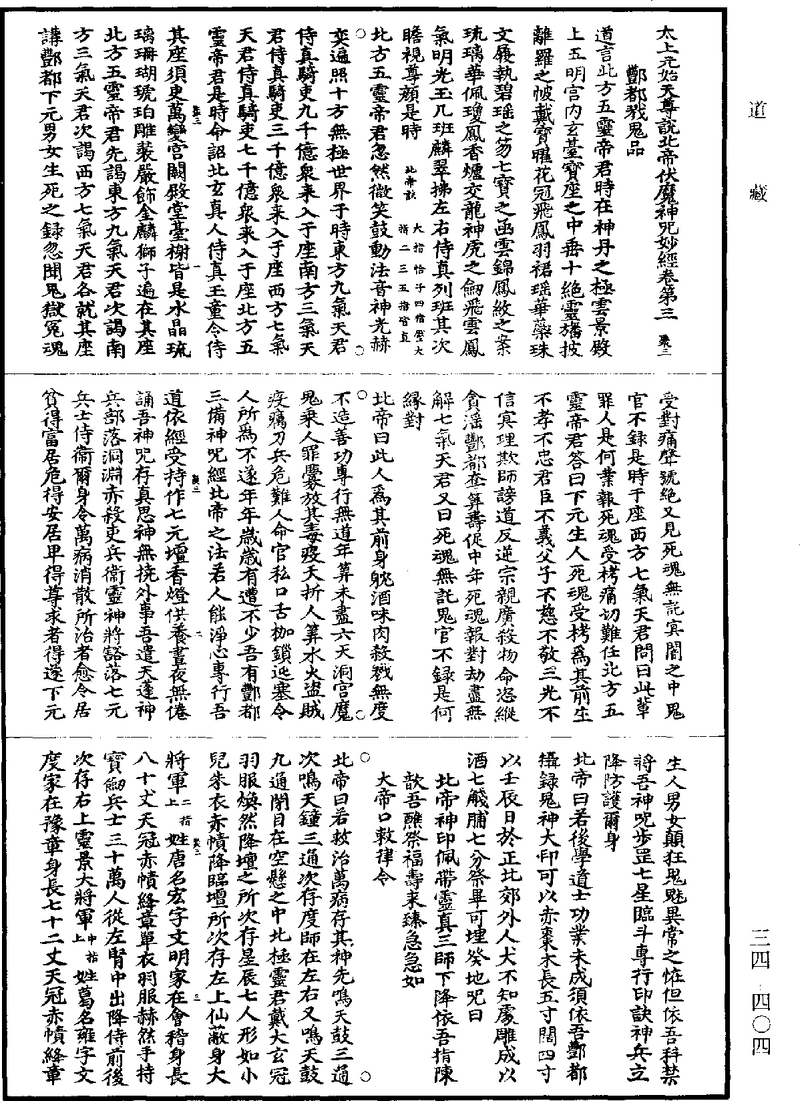 太上元始天尊說北帝伏魔神咒妙經卷第三 聚三
酆都戮鬼品
道言北方五靈帝君時在神丹之極雲景殿
上五明宮內玄臺寶座之中垂十絕靈旛披
離羅之帔戴寶曜花冠飛鳳羽裙瑶華蘂珠
文履執碧瑶之笏七寶之函雲錦鳳紋之案
琉璃華佩瓊鳳香爐交龍神虎之劒飛雲鳳
氣明光玉几班麟翠拂左右侍真列班其次
瞻視尊顔是時 北帝訣 大指恰子四指壓大指二三五指皆直
北方五靈帝君忽然微笑鼓動法音神光赫
奕遍照十方無極世界于時東方九氣天君
侍真騎吏九千億衆來入于座南方三氣天
君侍真騎吏三千億衆來入于座西方七氣
天君侍真騎吏七千億衆來入于座北方五
靈帝君是時命詔北玄真人侍真玉童令侍
其座須臾萬變宮闕殿堂臺榭皆是水晶琉
璃珊瑚琥珀雕裝嚴飾金麟獅子遍在其座
北方五靈帝君先謁東方九氣天君次謁南
方三氣天君次謁西方七氣天君各就其座
講酆都下元男女生死之録忽聞鬼獄冤魂
受對痛聲號絕又見死魂無託㝠闇之中鬼
官不録是時于座西方七氣天君問曰此輩
罪人是何業報死魂受栲痛切難任北方五
靈帝君答曰下元生人死魂受栲爲其前生
不孝不忠君臣不義父子不慈不敬三光不
信㝠理欺師謗道反逆宗親廣殺物命恣縱
貪淫酆都奎筭壽促中年死魂報對劫盡無
解七氣天君又曰死魂無託鬼官不録是何
緣對
北帝曰此人爲其前身躭酒味肉殺戮無度
不造善功專行無道年筭未盡六天洞宮魔
鬼乘人罪釁放其毒疫夭折人筭水火盜賊
疫癘刀兵危難人命官私口舌枷鎖迍塞令
人所爲不遂年年歲歲有遭不少吾有酆都
三備神咒經北帝之法若人能淨心專行吾
道依經受持作七元壇香燈供養晝夜無倦
誦吾神咒存真思神無撓外事吾遣天蓬神
兵部落洞淵赤殺吏兵衞靈神將豁落七元
兵士侍衞爾身令萬病消散所治者愈令居
貧得富居危得安居卑得尊求者得遂下元
生人男女顛狂鬼魅異常之恠但依吾科禁
將吾神咒步罡七星臨斗專行印訣神兵立
降防護爾身
北帝曰若後學道士功業未成須依吾酆都
攝録鬼神大印可以赤棗木長五寸闊四寸
以壬辰日於正北郊外人犬不知處雕成以
酒七觴脯七分祭畢可埋癸地咒曰
北帝神印佩帶靈真三師下降依吾指陳
歆吾醮祭福壽來臻急急如
大帝口敕律令
北帝曰若救治萬病存其神先鳴天鼓三通
次鳴天鐘三通次存度師在左右又鳴天鼓
九通閉目在空懸之中北極靈君戴大玄冠
羽服煥然降壇之所次存星辰七人形如小
兒朱衣赤幘降臨壇所次存左上仙蔽身大
將軍 二指上 姓唐名宏字文明家在會稽身長
八十丈天冠赤幘絳章單衣羽服赫然手持
寶劒兵士三十萬人從左腎中出降侍前後
次存右上靈景大將軍 中指上 姓葛名雍字文
度家在豫章身長七十二丈天冠赤幘絳章
道藏
三四 四〇四